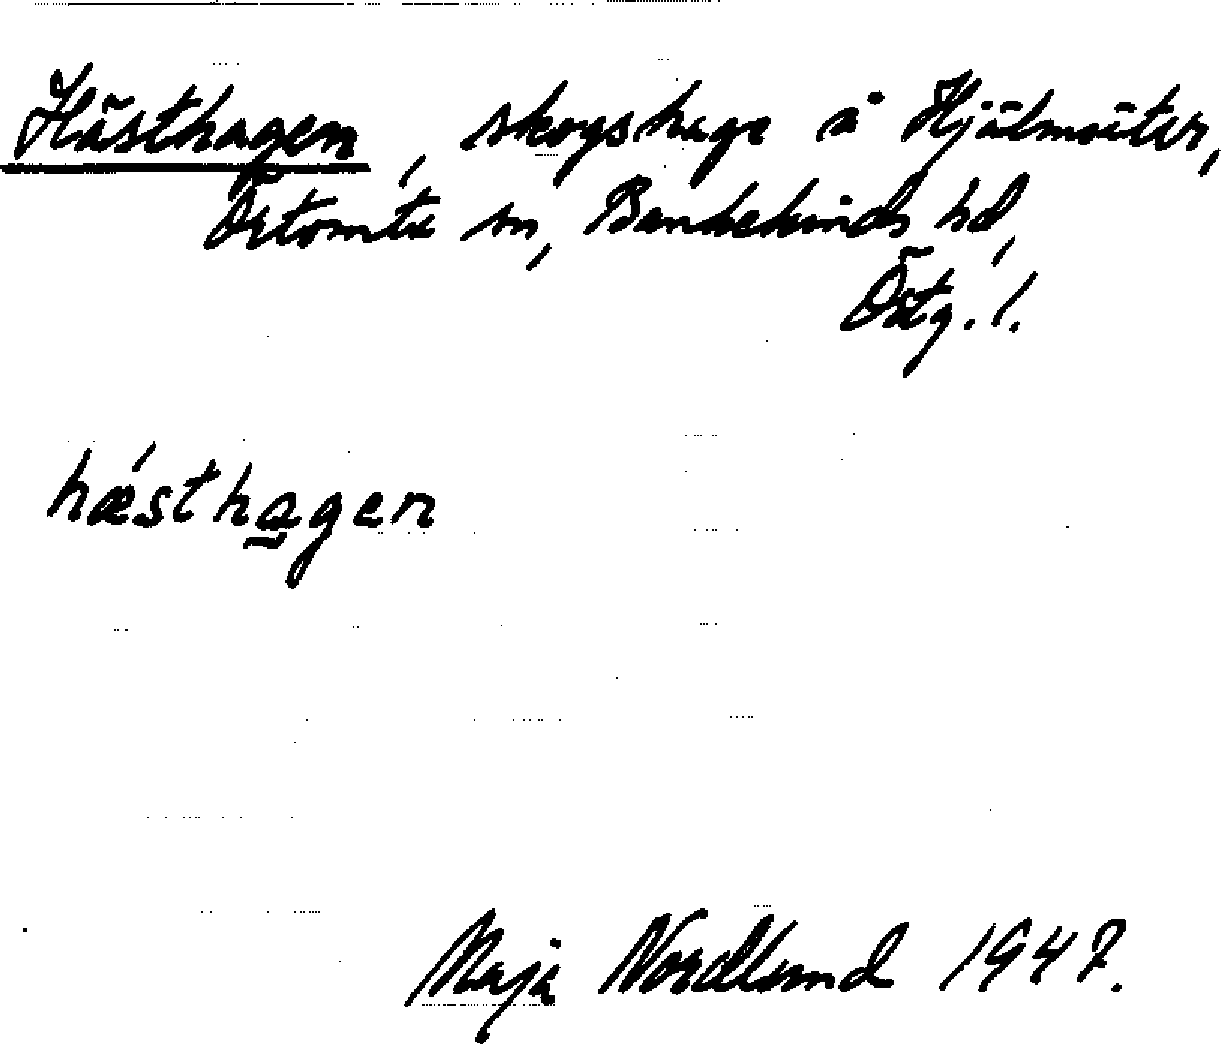 Hästhagen, skogshage å Hjälmsäter,
Örtomta sn, Bankekinds hd,
Östg. l.
hǽstha̲gen
Maja Nordlund 1947.